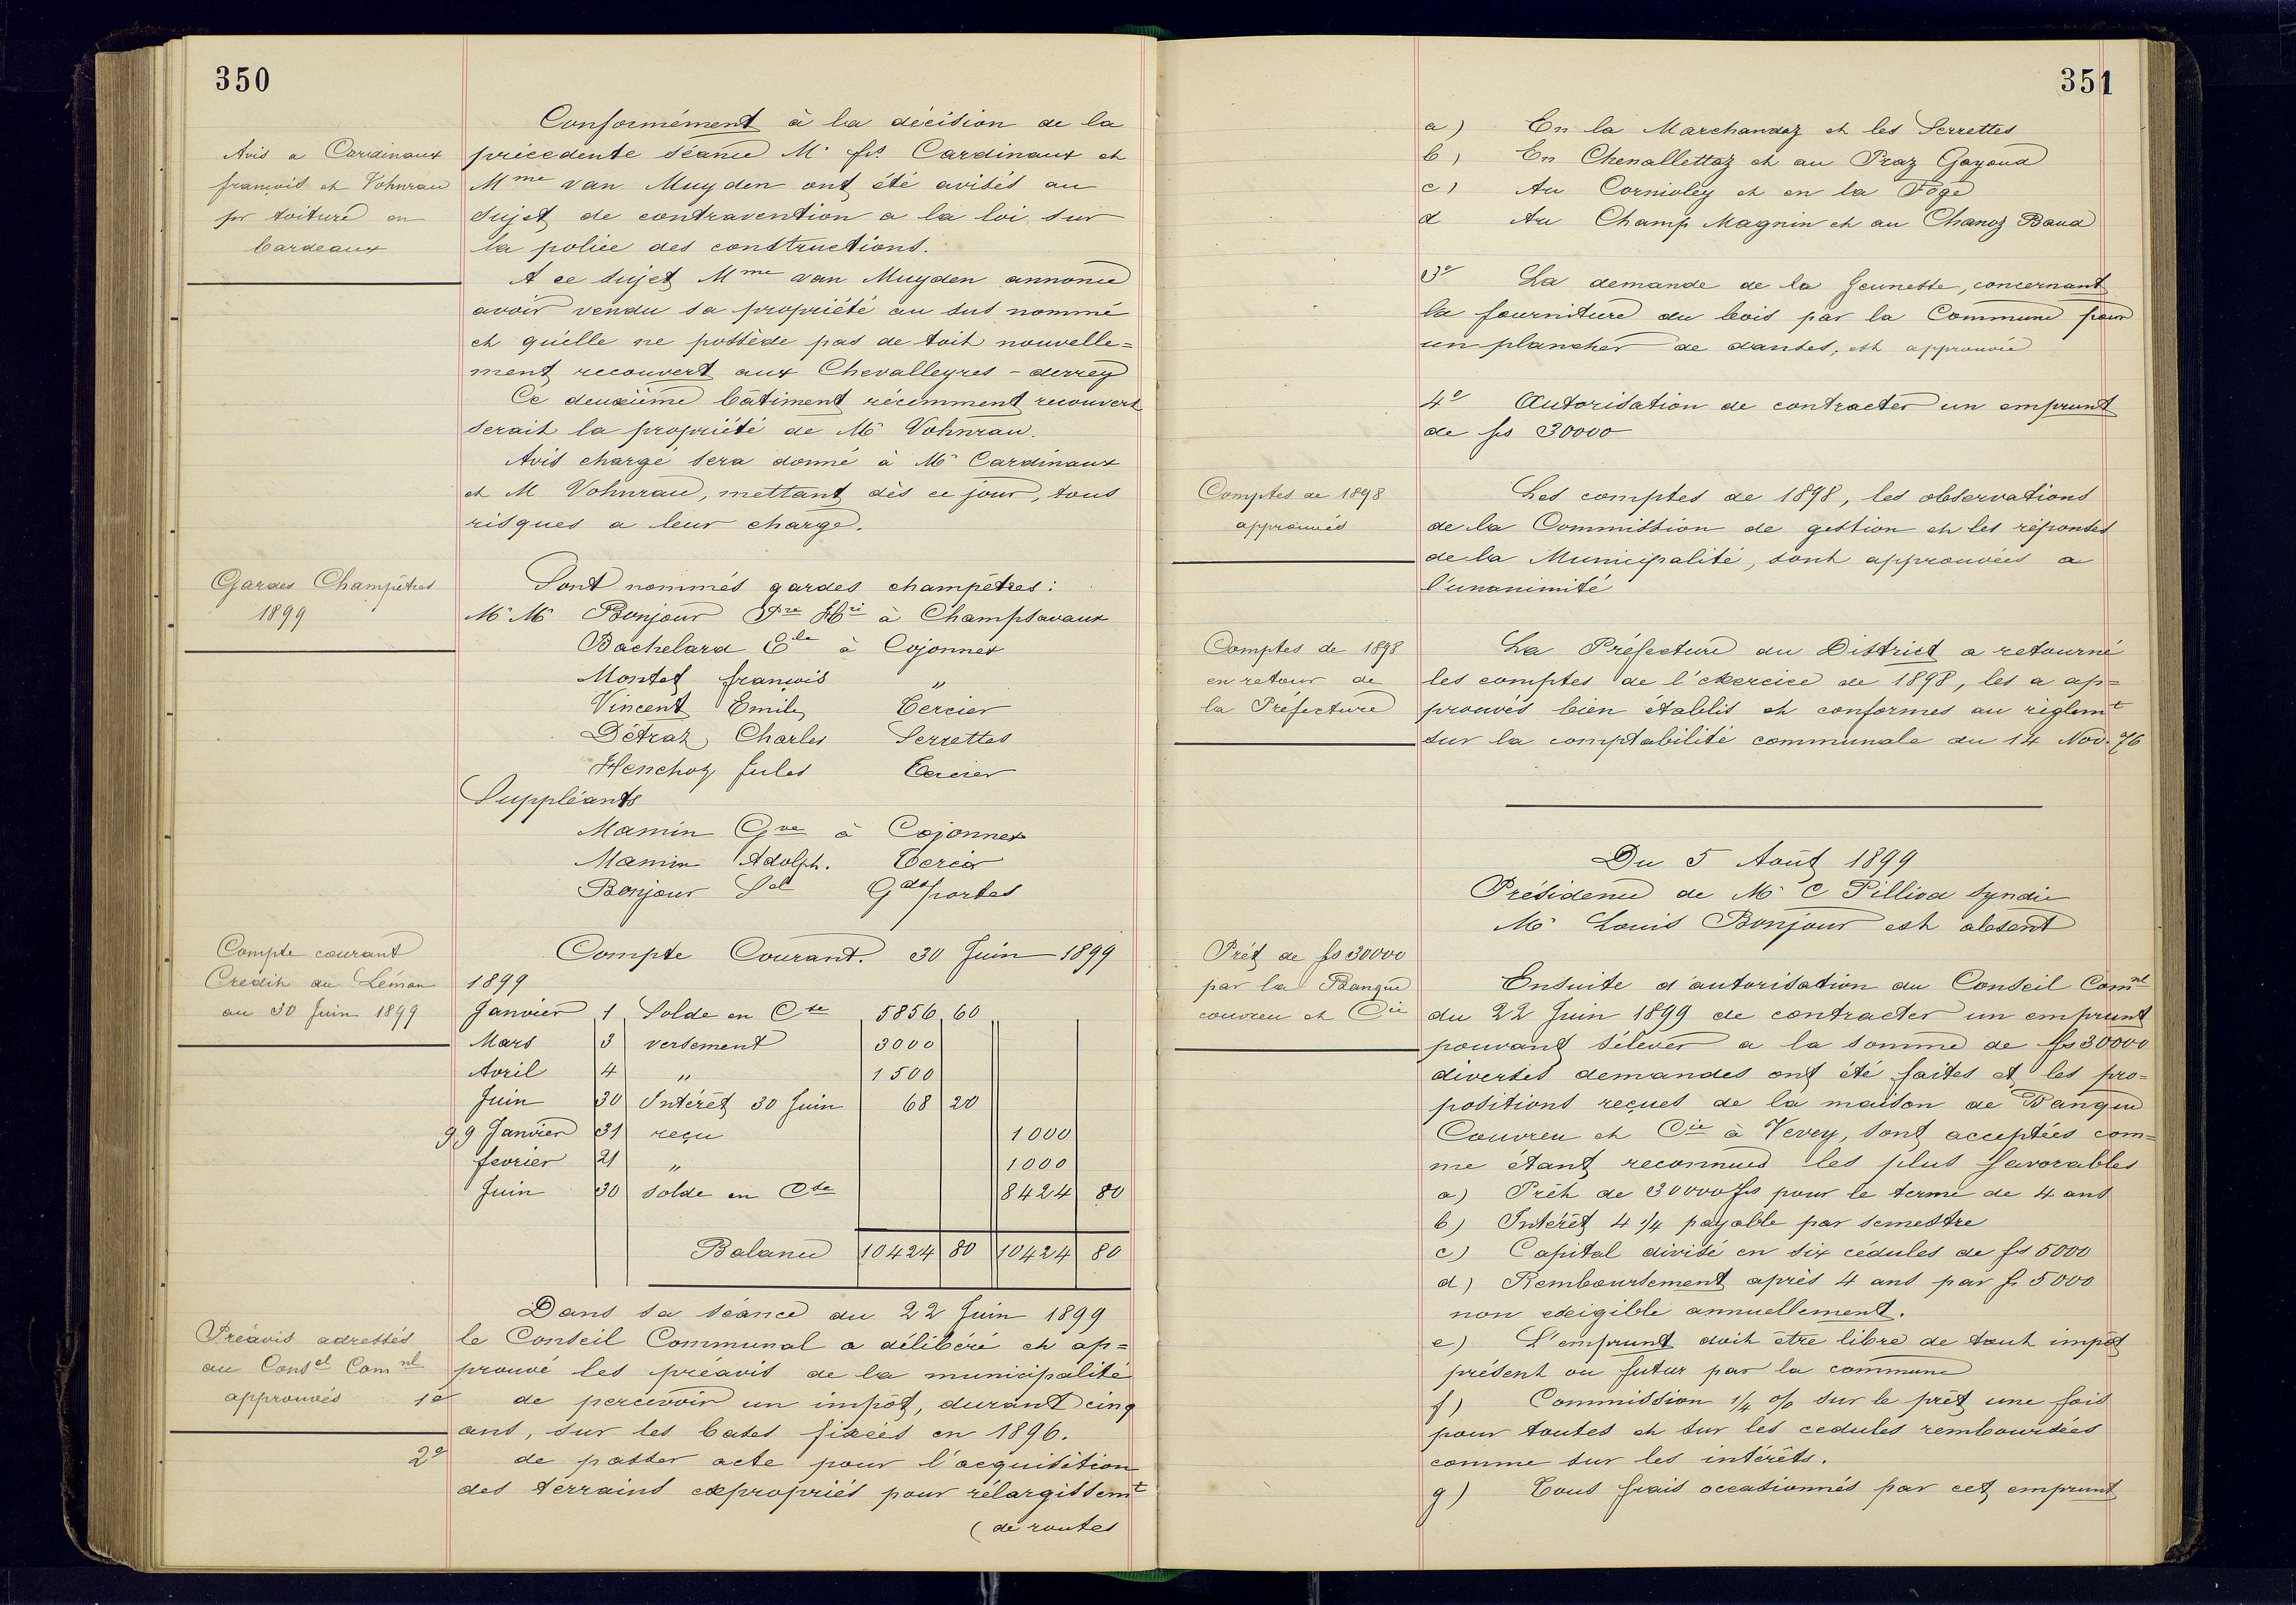 350
Avis a Cardinaux
françois et Vohnrau
pr toiture en
bardeaux
Conformément à la décision de la
précedente séance Mr frs Cardinaux et
Mme van Muyden ont été avisés au
sujet de contravention a la loi sur
la police des constructions.
A ce sujet Mme van Muyden annonce
avoir vendu sa propriété au sus nommé
et qu'elle ne possède pas de toit nouvelle=
ment recouvert aux Chevalleyres - derrey
Ce deuxième bâtiment récemment recouvert
serait la propriété de Mr Vohnrau.
Avis chargé sera donné à Mr Cardinaux
et M Vohnrau, mettant dès ce jour, tous
risques a leur charge.
Gardes Champêtres
1899
Sont nommés gardes champêtres:
Mr Mr Bonjour Pre Hri à Champsavaux
Bachelard Ele à Cojonnex
Montet françois "
Vincent Emile Tercier
Détraz Charles Serrettes
Henchoz Jules Tercier
Suppléants
Mamin Gve à Cojonnex
Mamin Adolph. Tercier
Bonjour Sel Gdes portes
Compte courant
Credit du Léman
au 30 Juin 1899
Compte Courant. 30 Juin 1899
1899
Janvier 1 Solde en Cte 5856 60
Mars 3 versement 3000
Avril 4 " 1500
Juin 30 Intérêt 30 Juin 68 20
99 Janvier 31 reçu 1000
fevrier 21 " 1000
Juin 30 solde en Cte 8424 80
Balance 10424 80 10424 80
Préavis adressés
au Consel Comnl
approuvés
Dans sa séance du 22 Juin 1899
le Conseil Communal a délibéré et ap=
prouvé les préavis de la municipalité
1e de percevoir un impôt, durant cinq
ans, sur les bases fixées en 1896.
2e de passer acte pour l'acquisition
des terrains expropriés pour rélargissemt
(de routes
351
a) En la Marchandaz et les Serrettes
b) En Chenallettaz et au Praz Gayoud
c) Au Cornioley et en la Foge
d Au Champ Magnin et au Chanoz Baud
3e La demande de la Jeunesse, concernant
la fourniture du bois par la Commune pour
un plancher de danses, est approuvée
4e Autorisation de contracter un emprunt
de frs 30000
Comptes de 1898
approuvés
Les comptes de 1898, les observations
de la Commission de gestion et les réponses
de la Municipalité, sont approuvées a
l'unanimité
Comptes de 1898
en retour de
la Préfecture
La Préfecture du District a retourné
les comptes de l'exercice de 1898, les a ap=
prouvés bien établis et conformes au règlemt
sur la comptabilité communale du 14 Nov. 76
Du 5 Août 1899
Présidence de Mr C Pilliod syndic
Mr Louis Bonjour est absent
Prêt de frs 30000
par la Banque
couvreu et Cie
Ensuite d'autorisation du Conseil Comnl
du 22 Juin 1899 de contracter un emprunt
pouvant s'élever a la somme de frs 30000
diverses demandes ont été faites et les pro=
positions reçues de la maison de Banque
Couvreu et Cie à Vevey, sont acceptées com=
me étant reconnues les plus favorables
a) Prêt de 30000 frs pour le terme de 4 ans
b) Intérêt 4 1/4 payable par semestre
c) Capital divisé en six cédules de frs 5000
d) Remboursement après 4 ans par fr 5000
non exigible annuellement.
e) L'emprunt doit être libre de tout impôt
présent ou futur par la commune
f) Commission 1/4 % sur le prêt une fois
pour toutes et sur les cedules remboursées
comme sur les intérêts.
g) Tous frais occasionnés par cet emprunt